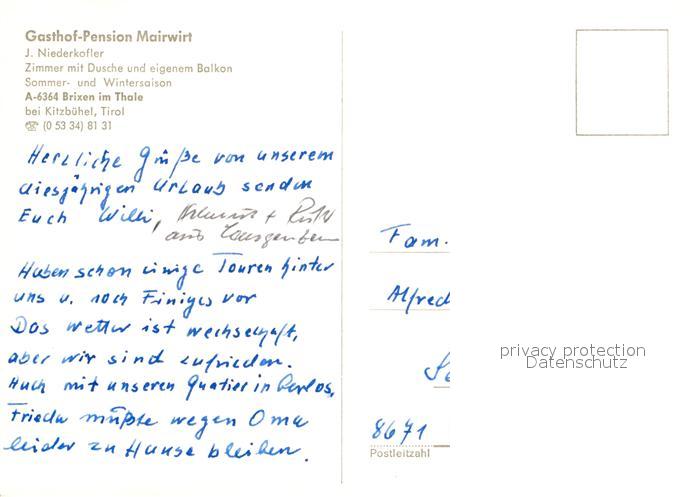 Gasthof-Pension Mairwirt
J. Niederkofler
Zimmer mit Dusche und eigenem Balkon
Sommer- und Wintersaison
A-6364 Brixen im Thale
bei Kitzbühel, Tirol
☎ (0 53 34) 81 31
Herzliche Grüße von unserem
diesjährigen Urlaub senden
Euch Willi, + Ruth
aus
Haben schon einige Touren hinter
uns u. noch Einiges vor
Das Wetter ist wechselhaft,
aber wir sind zufrieden.
Auch mit unseren Quatier
Frieda müßte wegen Oma
leider zu Hause bleiben.
Fam.
Alfred
8671
Postleitzahl
privacy protection
Datenschutz